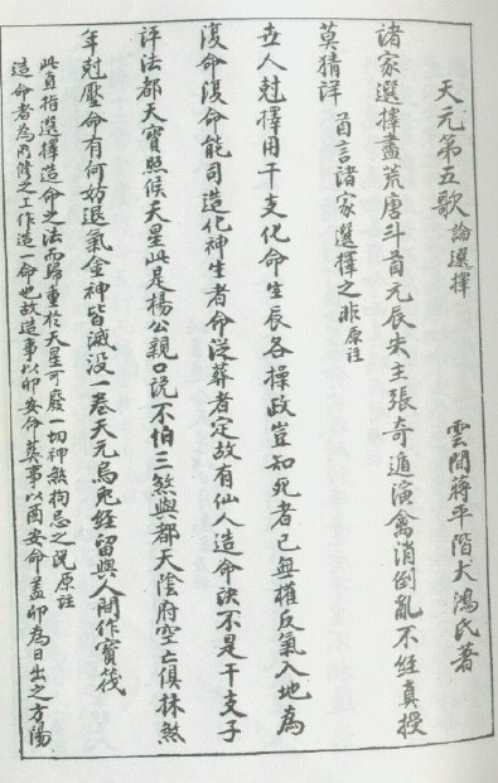 天元第五歌 論選擇
雲間蔣平階大鴻氏著
諸家選擇盡荒唐斗首元辰失主張奇遁演禽消倒亂不經真授
莫猜詳 首言諸家選擇之非原註
世人尅擇用干支化命生辰各操政豈知死者已無權反氣入地為
復命復命能司造化神生者命從葬者定故有仙人造命訣不是干支子
評法都天寶照候天星此是楊公親口說不怕三煞與都天陰府空亡俱抹煞
年尅壓命有何妨退氣金神皆滅没一卷天元烏兔經留與人間作寶筏
此直指選擇造命之法而歸重於天星可廢一切神煞拘忌之說原註
造命者為所修之工作造一命也故造事以卯安命葬事以酉安命蓋卯為日出之方陽